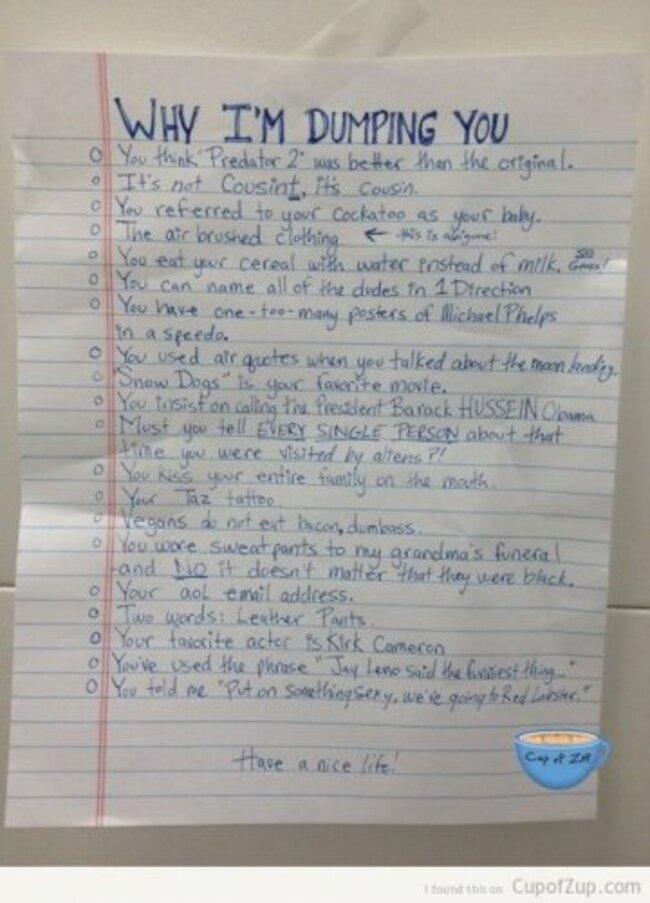 WHY I'M DUMPING YOU
You think "Predator 2" was better than the original.
It's not Cousint, it's cousin.
You referred to your cockatoo as your baby.
The air brushed clothing ← this is
You eat your cereal with water instead of milk, SOO Gross!
You can name all of the dudes in 1 Direction
You have one-too-many posters of Michael Phelps
in a speedo.
You used air quotes when you talked about the moon landing.
"Snow Dogs" is your favorite movie.
You insist on calling the President Barack HUSSEIN Obama
Must you tell EVERY SINGLE PERSON about that
time you were visited by aliens?!
You kiss your entire family on the mouth.
Your Taz tattoo
Vegans do not eat bacon, dumbass.
You wore sweatpants to my grandma's funeral
and NO it doesn't matter that they were black.
Your aol email address.
Two words: Leather Pants.
Your favorite actor is Kirk Cameron
You've used the phrase "Jay Leno said the funniest thing..."
You told me "Put on something sexy, we're going to Red Lobster."
Have a nice life!
Cup of Zup
I found this on CupofZup.com